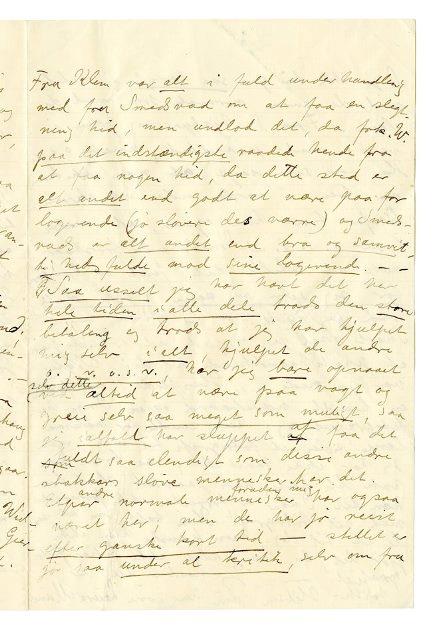 Fru Klem var alt i fuld underhandling
med fru Smedsvad om at faa en slegt-
ning hid, men undlod det, da frk. W.
paa det indstændigste raaded hende fra
at faa nogen hid, da dette sted er
alt andet end godt at være paa for
logerende (jo sløvere des værre) og Smeds-
vads er alt andet end bra og samvit-
tighedsfulde mod sine logerende. –
Saa usselt jeg har havt det her
hele tiden i alle dele trods den store
betaling og trods at jeg har hjulpet
mig selv i alt, hjulpet de andre
o. s. v. o. s. v., har jeg bare opnaaet
ved selv dette altid at være paa vagt og
greie selv saa meget som muligt, saa
jeg ialfald har sluppet at faa det
fuldt saa elendigt som disse andre
stakkars sløve mennesker har det.
Et par andre normale mennesker foruden mig har ogsaa
været her, men de har jo reist
efter ganske kort tid – stellet er
jo saa under al kritik, selv om fru